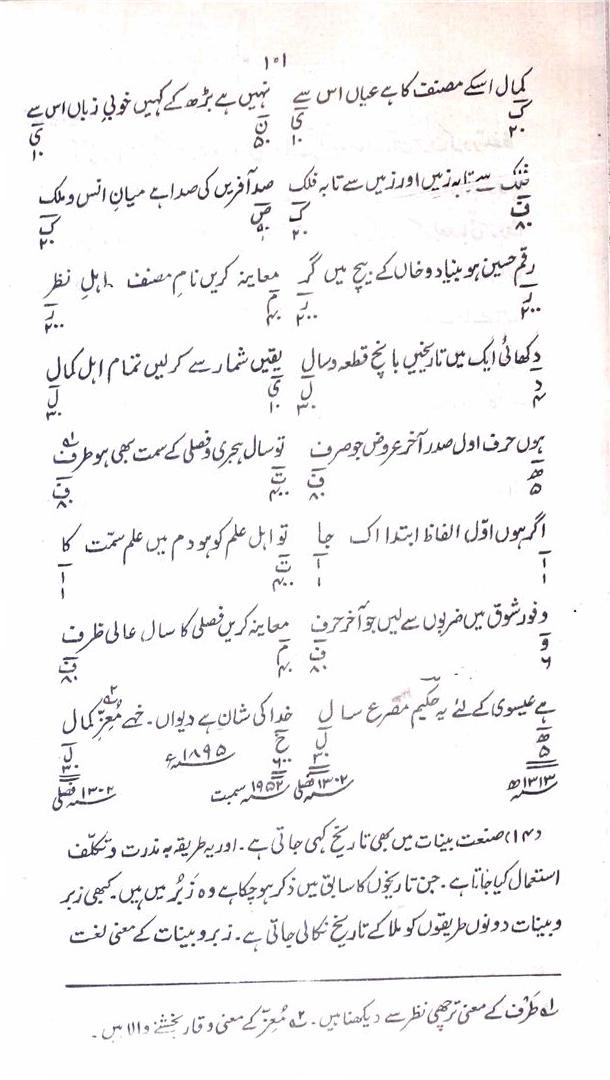 ۱۰۱
کمال اسکے مصنف کا ہے عیاں اس سے نہیں ہے بڑھ کے کہیں خوبیِ زباں اس سے
ک ی ن ی
۲۰ ۱۰ ۵۰ ۱۰
فلک سے تابہ زمیں اور زمیں سے تابہ فلک صد آفریں کی صدا ہے میانِ انس و ملک
ف ک ص ک
۸۰ ۲۰ ۹۰ ۲۰
رقم حسین ہو بنیاد و خاں کے بیچ میں گر معاینہ کریں نامِ مصنف اہلِ نظر
ر ر م ر
۲۰۰ ۲۰۰ ۴۰ ۲۰۰
دکھائی ایک میں تاریخیں پانچ قطعہ و سال یقیں شمار سے کرلیں تمام اہل کمال
د ل ی ل
۴ ۳۰ ۱۰ ۳۰
ہوں حرف اول صدر آخر عروض جو صرف تو سال ہجری و فصلی کے سمت بھی ہو طرف ۱ھ
ھ ف ت ف
۵ ۸۰ ۴۰۰ ۸۰
اگر ہوں اوّل الفاظ ابتدا اک جا تو اہل علم کو ہو دم میں علم سمّت کا
ا ا ت ا
۱ ۱ ۴۰۰ ۱
وفور شوق میں ضربوں سے لیں جو آخر حرف معاینہ کریں فصلی کا سال عالی ظرف
و ف م ف
۶ ۸۰ ۴۰ ۸۰
ہے عیسوی کے لئے یہ حکیم مصرع سال خدا کی شان ہے دیواں۔ خہے مُعِزِّ ۲ھ کمال
ھ ل خ ۱۸۹۵ء ل
۵ ۳۰ ۶۰۰ ۳۰
۱۳۱۳ھ ۱۳۰۲ فصلی ۱۹۵۲ سمت ۱۳۰۲ فصلی
(۱۴) صنعت بینات میں بھی تاریخ کہی جاتی ہے۔ اور یہ طریقہ بہ ندرت و تکلّف
استعمال کیا جاتا ہے۔ جن تاریخوں کا سابق میں ذکر ہو چکا ہے وہ زَبُر میں ہیں۔ کبھی زبر
و بینات دونوں طریقوں کو ملا کے تاریخ نکالی جاتی ہے۔ زبر و بینات کے معنی لغت
۱ھ طَرْف کے معنی ترچھی نظر سے دیکھنا ہیں۔ ۲ھ مُعِزّ کے معنی وقار بخشنے والا ہیں۔